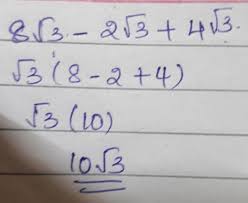 8√3 - 2√3 + 4√3.
√3 (8 - 2 + 4)
√3 (10)
10√3